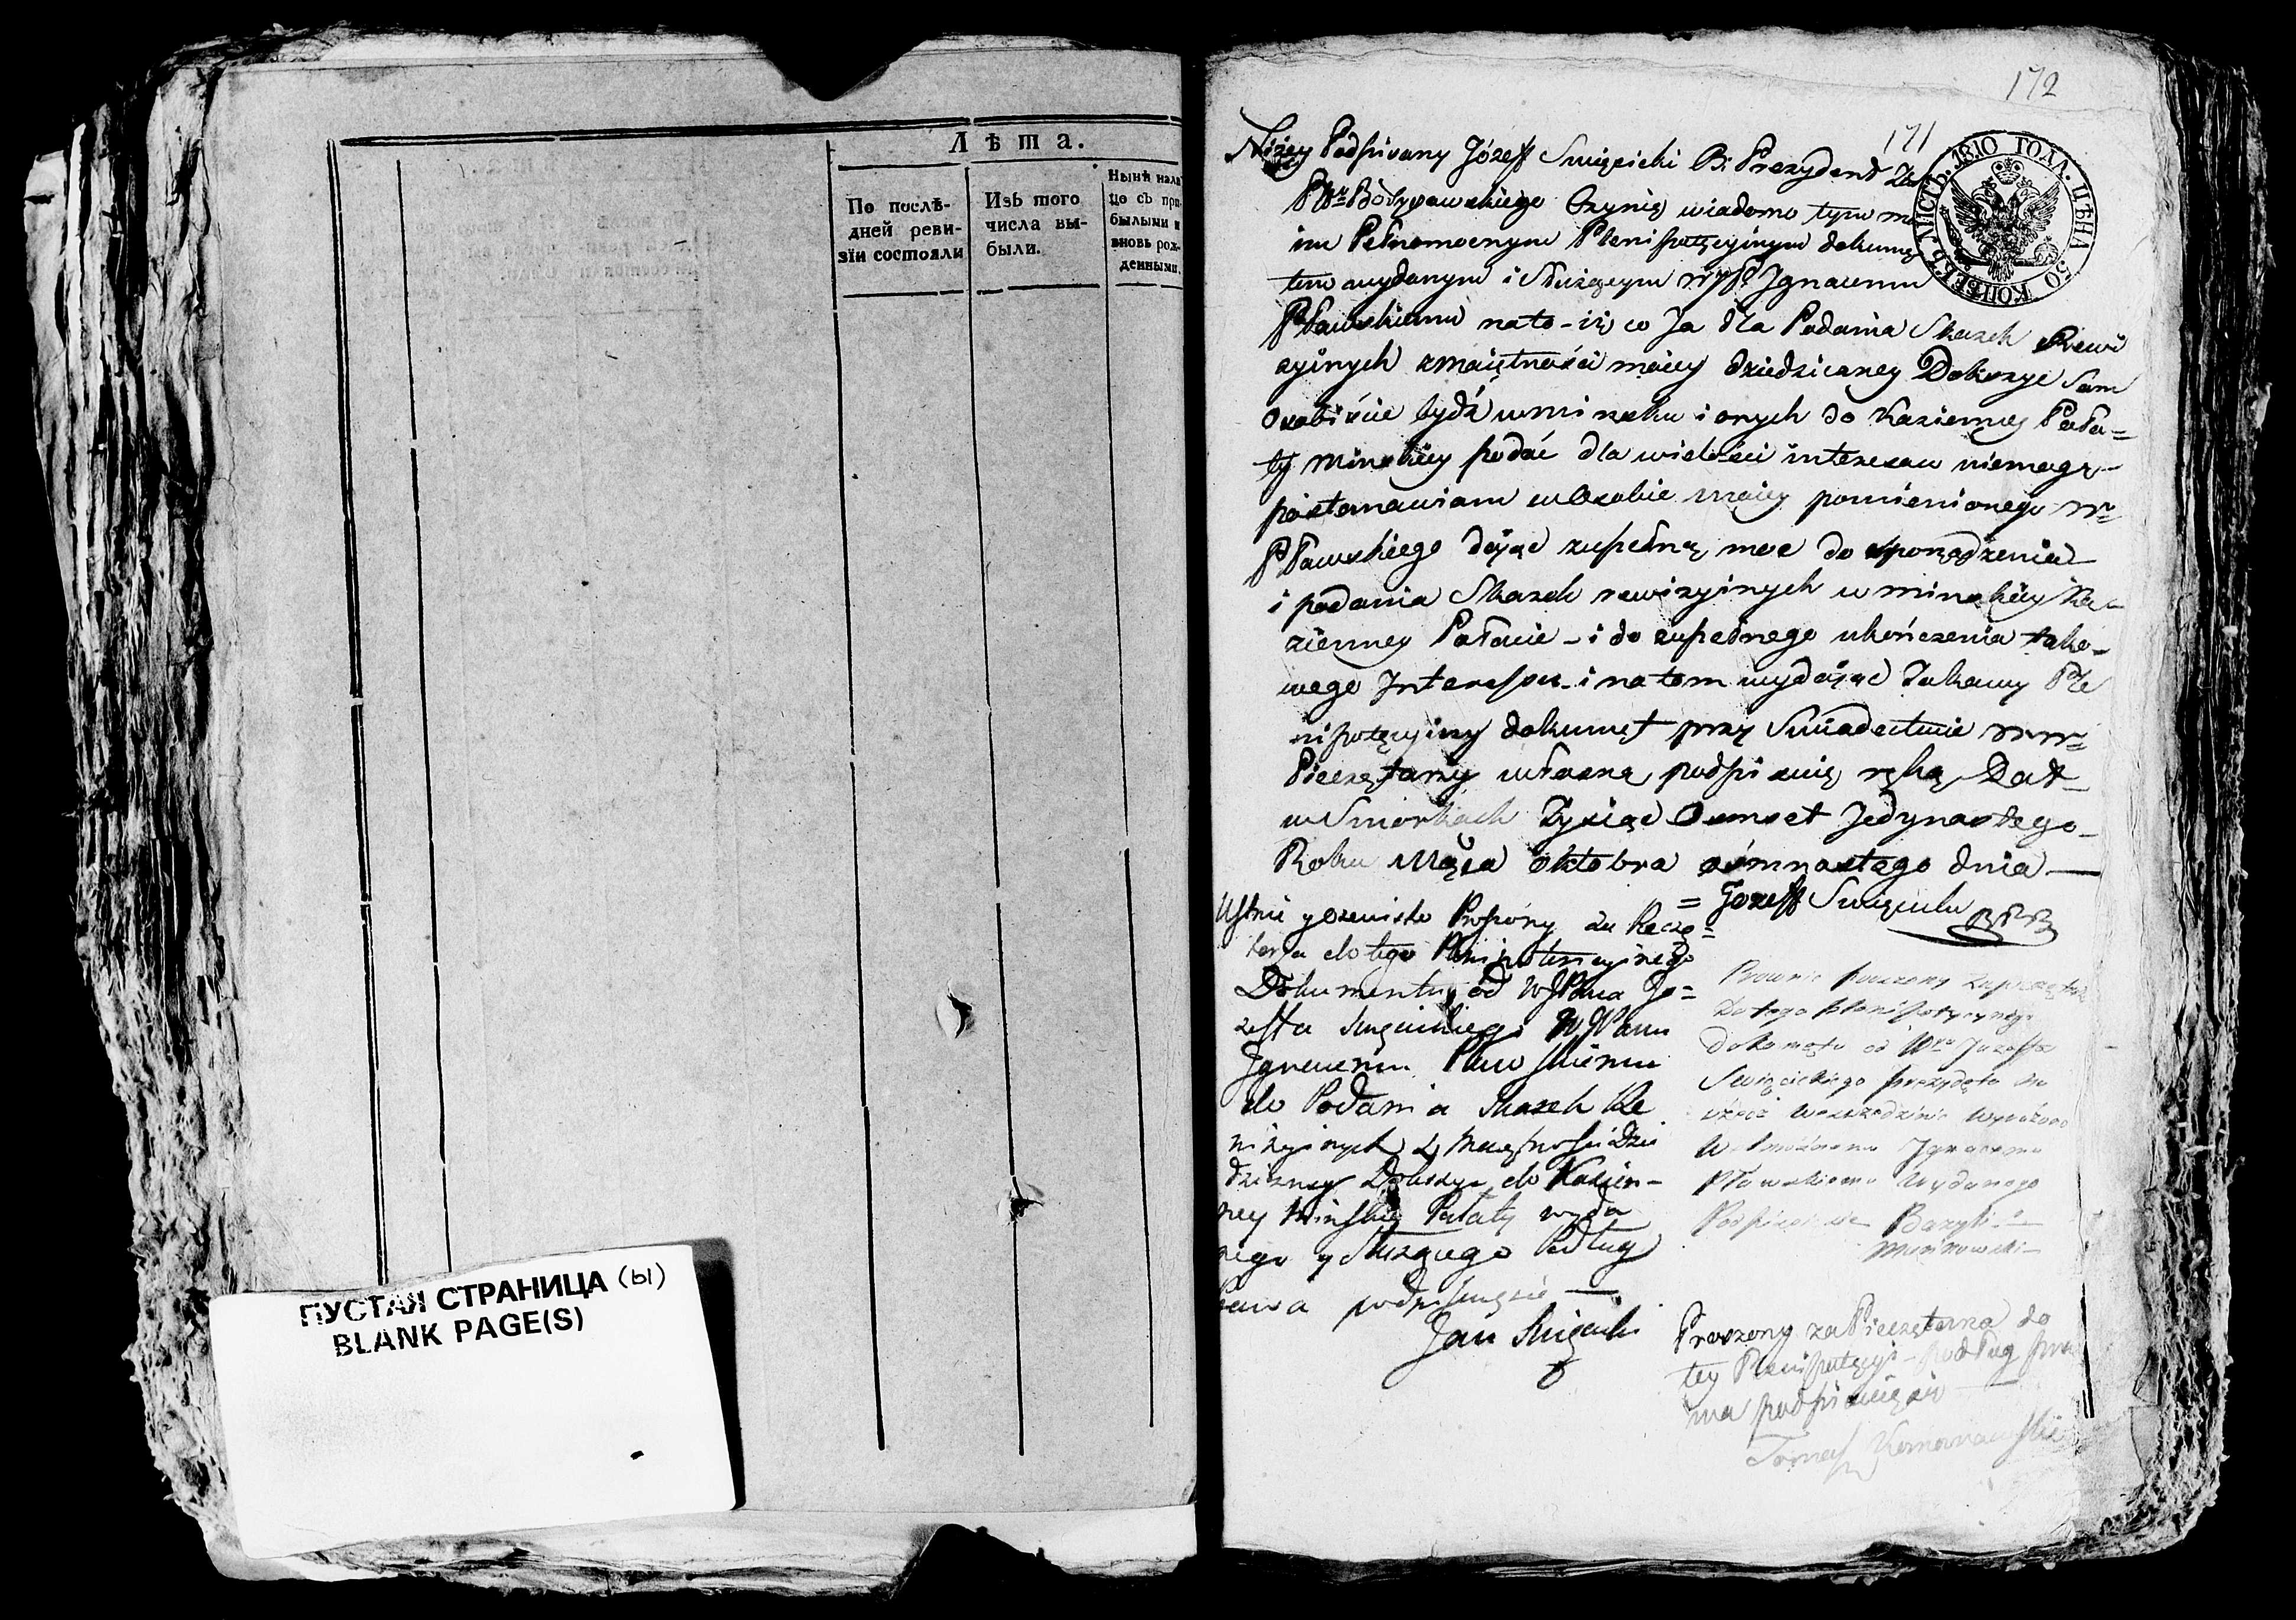 Лѣта.
По послѣ-
дней реви-
зїи состояли
Изъ того
числа вы-
были.
Нынѣ нали
цо съ при-
былыми и
вновь рож-
денными.
ПУСТАЯ СТРАНИЦА (ы)
BLANK PAGE(S)
172
171
ЛИСТЪ. 1810 ГОДА. ЦѢНА 50 КОПѢЕКЪ.
Niżey Podpisany Józeff Swięcicki B: Prezydend
Borysawskiego Czynię wiadomo tym
im Pełnomocnym Plenipotęcyinym dokumę
tem wydanym i Służącym Ignacemu
Pławskiemu na to - iż co Ja dla Podania Skazek Rewi
zyinych zmaiętnaści moiey dziedziczney Dokszyc sam
Osobiście bydź w minsku i onych do Kazienney Pała=
ty minskiey podać dla wielości interesaw niemogę -
postanawiam w Osobie moiey pomienionego W=
Pławskiego dając zupełną moc do sporządzenia
i podania Skazek rewizyinych w minskiey Ka-
zienney Pałacie - i do zupełnego ukończenia tako-
wego Interessu - i na tem wydając takowy Ple
nipotęcyiny dokumęt przy Swiadectwie WW=
Pieczętarzy własną podpisuię ręką Dat
w Smorkach Tysiąc Osmset Jedynastego
Roku Mąca Oktobra osmnastego dnia —
= Jozeff Swięcicki BPB
Ustnie y oczewisto Proszony za Pieczę=
tarza do tego Plenipotencyinego
Dokumentu od WJPana Jo=
zeffa Swięcickiego WJPanu
Ignacemu Pławskiemu
do Podania Skazek Re
wizyinych z Maiętnosci Dzie
dziczney Dokszyc do Kazien-
ney Minskiey Pałaty wyda
nego y Służącego Podług
Prawa podpisuię sie —
Jan Swięcicki
Prawnie proszony za pieczętarza
do tego plenipotęcyinego
dokumętu od Wgo Jozeffa
Swięcickiego prezydęta na
rzecz wyrażoną
Wielmożnemu Ignacemu
Pławskiemu wydanego
Podpisuie sie Bazyli
Proszony za Pieczętarza do
tey Plenipotęcyi - podług pra
wa podpisuię sie —
Tomasz